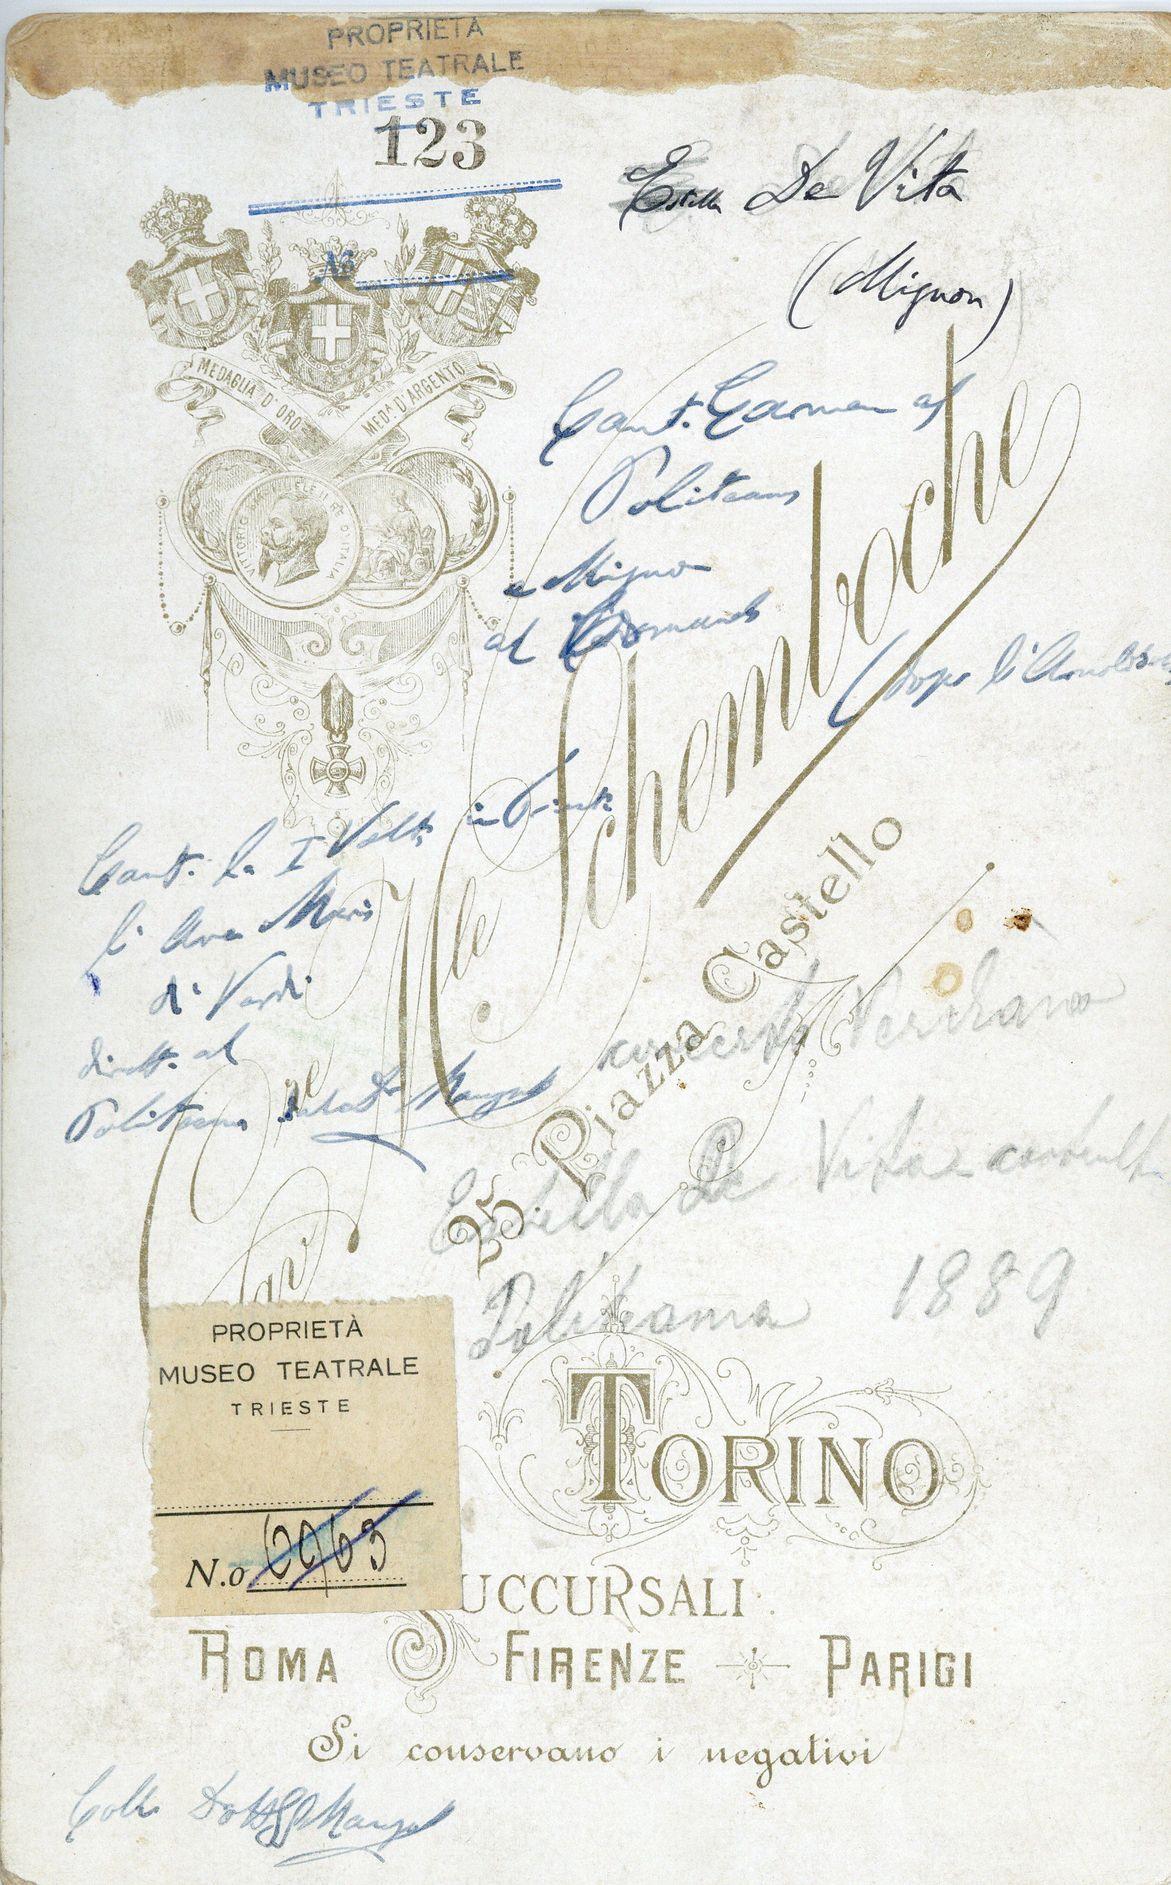 PROPRIETÀ
MUSEO TEATRALE
TRIESTE
123
No
Estella De Vita
(Mignon)
MEDAGLIA D'ORO
MEDA. D'ARGENTO
VITTORIO EMANUELE II RE D'ITALIA
Cant. Carmen al
Politeama
e Mignon
al
(dopo l'
Cant. la I Volta in Trieste
l'Ave Maria
di Verdi
dirett. al
Politeama
Cav. re Mle Schemboche
25. Piazza Castello
concerto Verdiano
Estella De Vita
Politeama 1889
PROPRIETÀ
MUSEO TEATRALE
TRIESTE
N.o 6963
TORINO
SUCCURSALI
ROMA FIRENZE PARIGI
Si conservano i negativi
Coll. Dott.